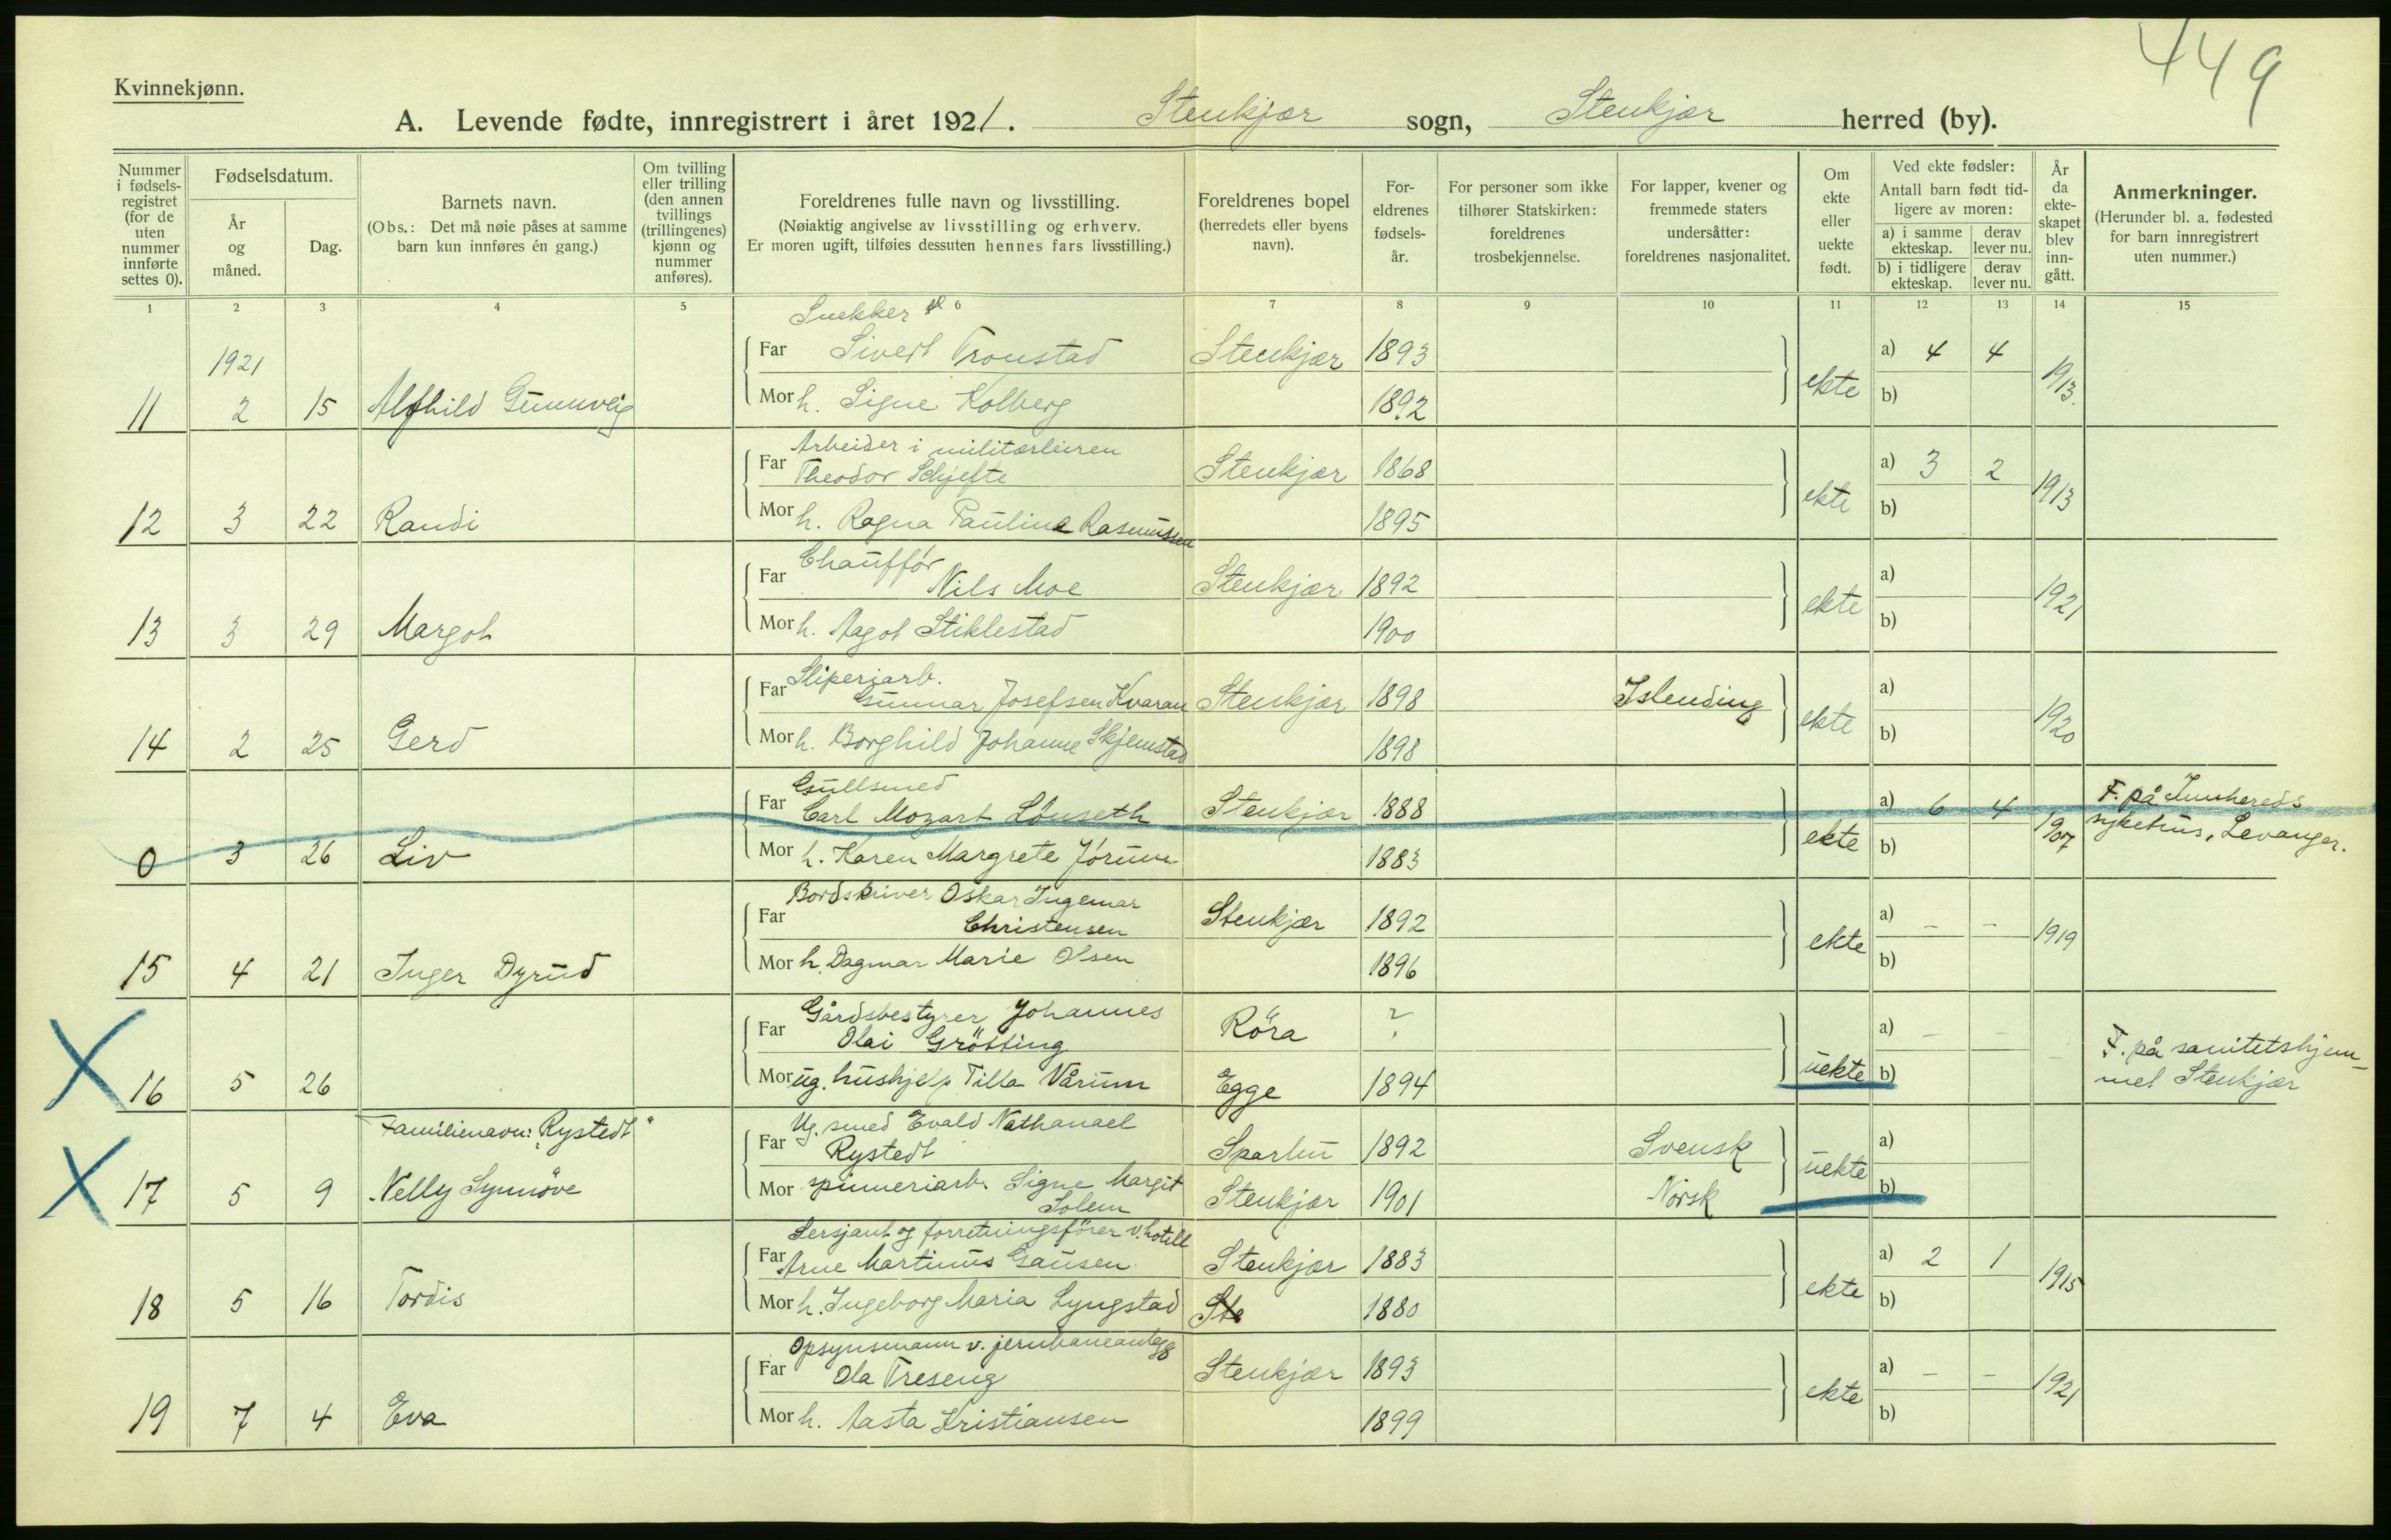 449
Kvinnekjønn.
A. Levende fødte, innregistrert i året 1921. Stenkjær sogn, Stenkjær herred (by).
Nummer i fødsels-registret (for de uten nummer innførte settes 0).
Fødselsdatum.
År og måned.
Dag.
Barnets navn.
(Obs.: Det må nøie påses at samme barn kun innføres én gang.)
Om tvilling eller trilling (den annen tvillings (trillingenes) kjønn og nummer anføres).
Foreldrenes fulle navn og livsstilling.
(Nøiaktig angivelse av livsstilling og erhverv.
Er moren ugift, tilføies dessuten hennes fars livsstilling.)
Foreldrenes bopel
(herredets eller byens navn).
For-eldrenes fødsels-år.
For personer som ikke tilhører Statskirken: foreldrenes trosbekjennelse.
For lapper, kvener og fremmede staters undersåtter: foreldrenes nasjonalitet.
Om ekte eller uekte født.
Ved ekte fødsler:
Antall barn født tid-ligere av moren:
a) i samme ekteskap.
derav lever nu.
b) i tidligere ekteskap.
derav lever nu.
År da ekte-skapet blev inn-gått.
Anmerkninger.
(Herunder bl. a. fødested for barn innregistrert uten nummer.)
1 2 3 4 5 6 7 8 9 10 11 12 13 14 15
Snekker
1921
Far Sivert Tronstad Stenkjær 1893 a) 4 4
11 2 15 Alfhild Gunnveig Mor h. Signe Kolberg 1892 ekte b) 1913.
Arbeider i militærleiren
Far Theodor Schjefte Stenkjær 1868 a) 3 2
12 3 22 Randi Mor h. Ragna Pauline Rasmussen 1895 ekte b) 1913
Chauffør
Far Nils Moe Stenkjær 1892 a)
13 3 29 Margot Mor h. Aagot Stiklestad 1900 ekte b) 1921
Sliperiarb.
Far Gunnar Josefsen Kvaran Stenkjær 1898 Islending a)
14 2 25 Gerd Mor h. Borghild Johanne Skjemstad 1898 ekte b) 1920
Gullsmed
Far Carl Mozart Lønseth Stenkjær 1888 a) 6 4 F. på Innhereds
0 3 26 Liv Mor h. Karen Margrete Jørum 1883 ekte b) 1907 sykehus, Levanger.
Bordskriver Oskar Ingemar
Far Christensen Stenkjær 1892 a) - -
15 4 21 Inger Dyrud Mor h. Dagmar Marie Olsen 1896 ekte b) 1919
Gårdsbestyrer Johannes
Far Olai Grötting Röra ? a) - - F. på sanitetshjem-
X 16 5 26 Mor ug. hushjelp Tilla Vårum Egge 1894 uekte b) - met Stenkjær
Familienavn: Rystedt
Ug. smed Evald Nathanael
Far Rystedt Sparbu 1892 Svensk a)
X 17 5 9 Nelly Synnöve Mor spinneriarb. Signe Margit Stenkjær 1901 Norsk uekte b)
Solem
Sersjant og forretningsförer v. hotell
Far Arne Martinus Gausen Stenkjær 1883 a) 2 1
18 5 16 Tordis Mor h. Ingeborg Maria Lyngstad Ste 1880 ekte b) 1915
Opsynsmann v. jernbaneanlegg
Far Ola Treseng Stenkjær 1893 a) - -
19 7 4 Eva Mor h. Aasta Kristiansen 1899 ekte b) 1921